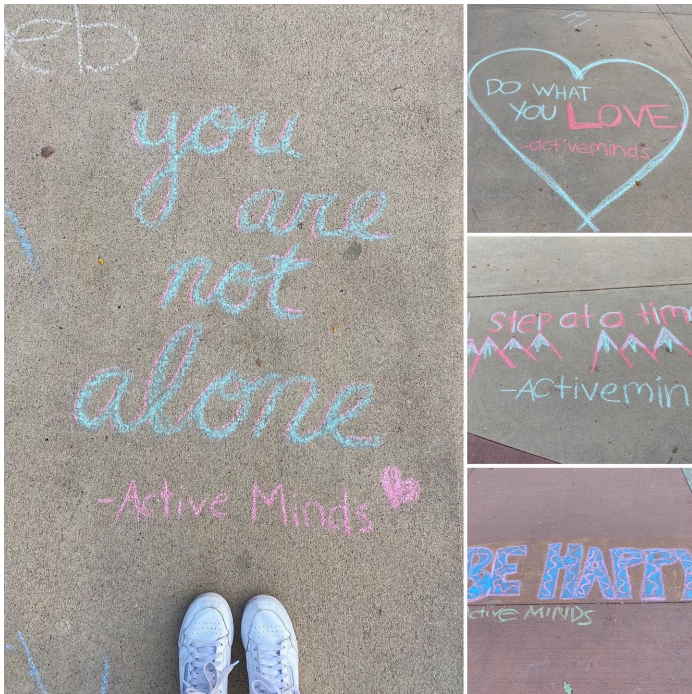 eb
you
are
not
alone
-Active Minds
DO WHAT
YOU LOVE
-activeminds
step at a tim
-ACtivemin
BE HAPPY
ctive MINDS